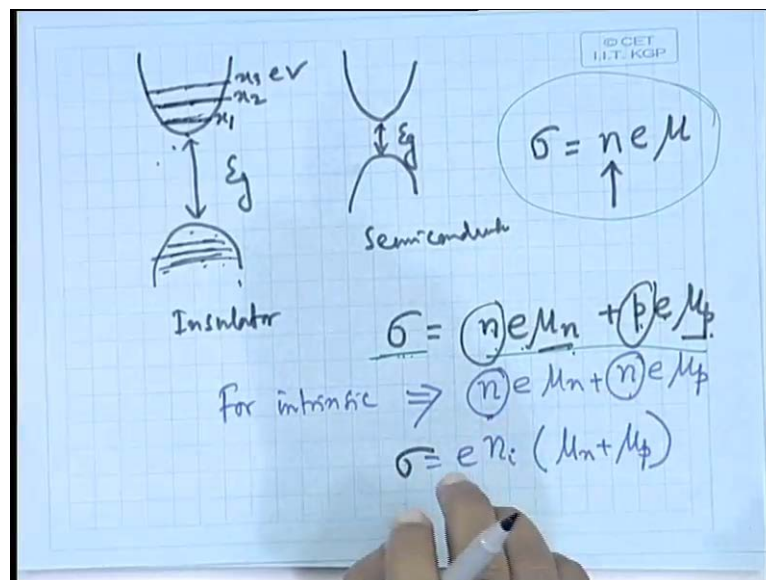 © CET
I.I.T. KGP
x3 eV
x2
x1
Eg
Eg
σ = neμ
Semiconduct
Insulator
σ = neμn + peμp
For intrinsic ⇒ neμn + neμp
σ = e ni (μn + μp)